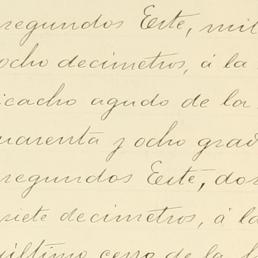 segundos Este, mil
ocho decimetros, á la
icacho agudo de la
uarenta y ocho grad
segundos Este, dos
siete decimetros, á la
último cerro de la